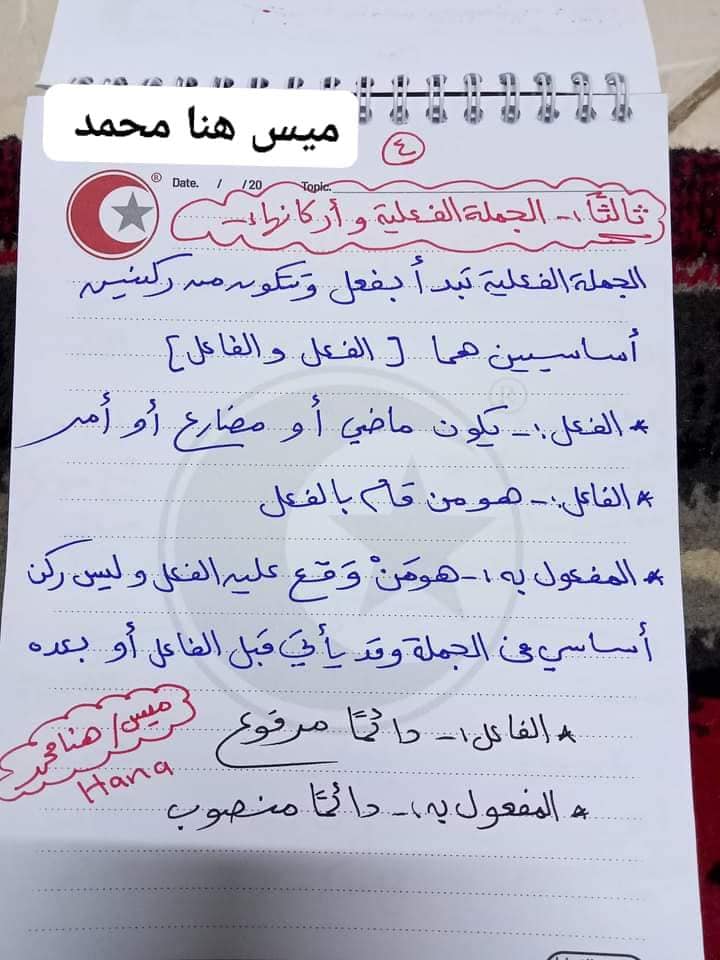 ميس هنا محمد
٤
®
Date. / /20 Topic.
ثالثًا :- الجملة الفعلية و أركانها :-
الجملة الفعلية تبدأ بفعل وتتكون من ركنين
أساسيين هما [ الفعل و الفاعل ]
* الفعل :- يكون ماضي أو مضارع أو أمر
* الفاعل :- هو من قام بالفعل
* المفعول به :- هو مَنْ وَقع عليه الفعل و ليس ركن
أساسي في الجملة وقد يأتي قبل الفاعل أو بعده
* الفاعل :- دائمًا مرفوع
ميس / هنا محمد
Hana
* المفعول به :- دائمًا منصوب